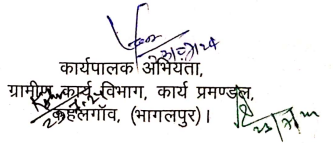 कार्यपालक अभियंता,
ग्रामीण कार्य विभाग, कार्य प्रमण्डल,
कहलगाँव, (भागलपुर)।